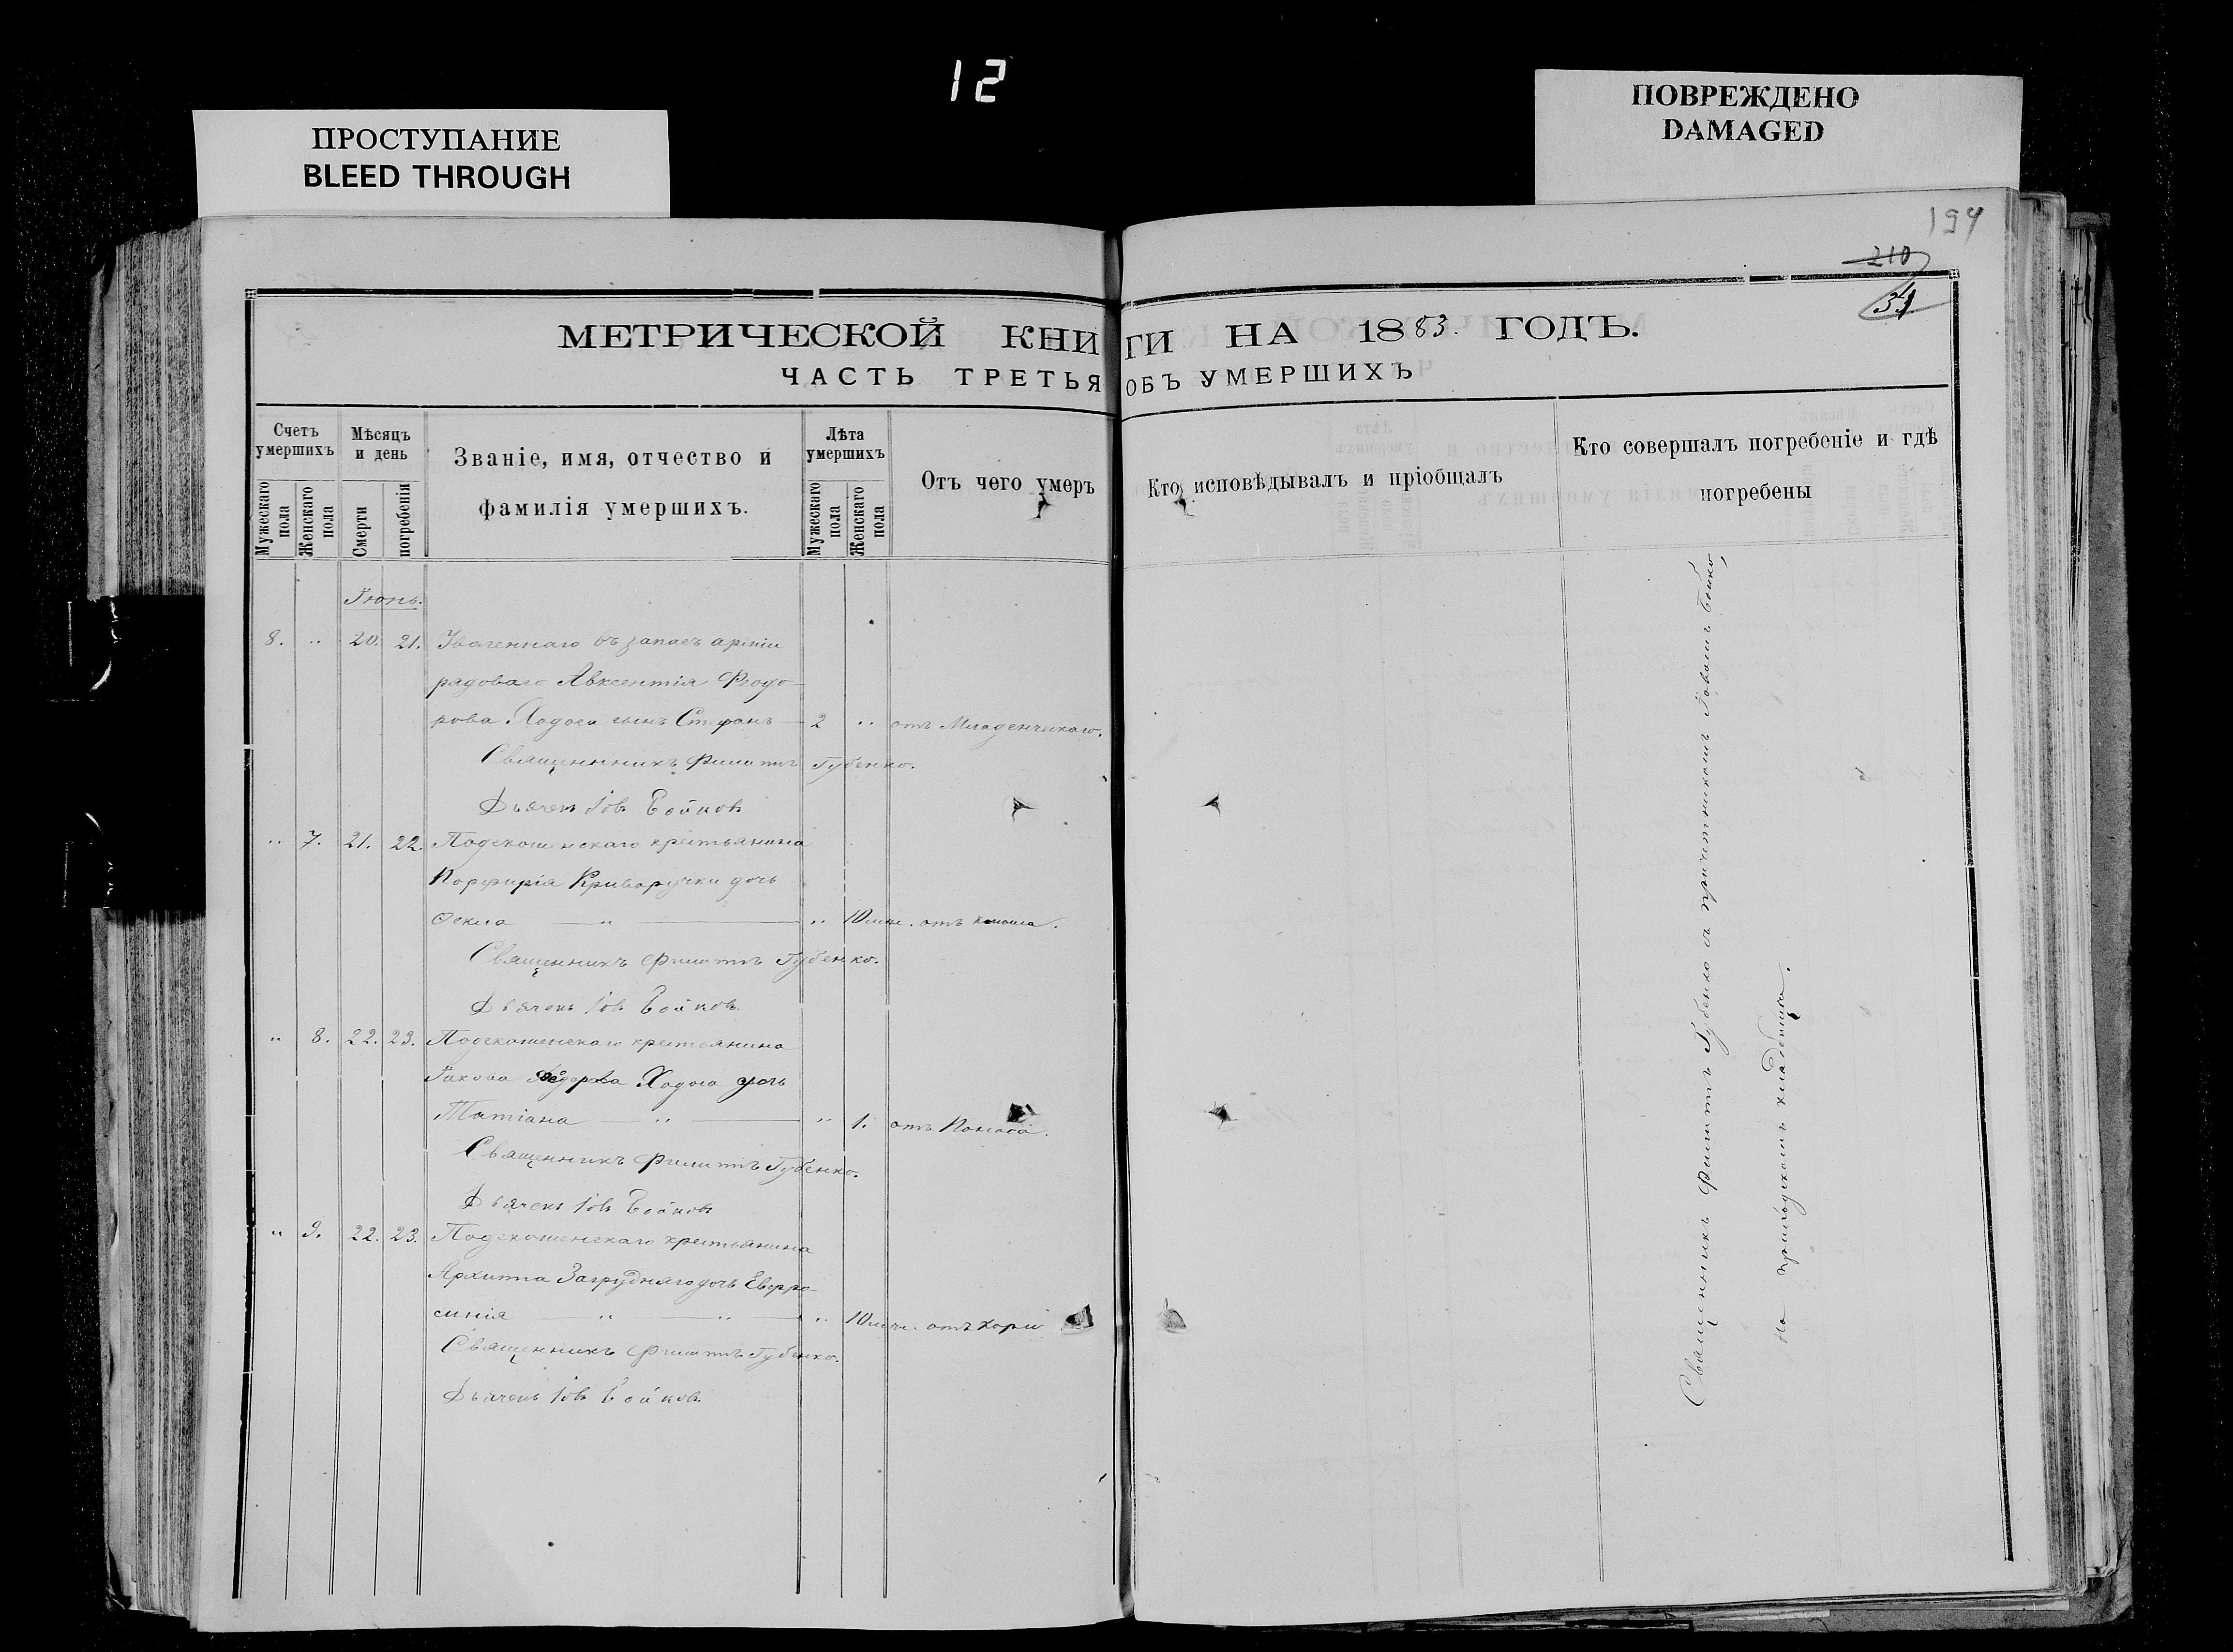 12
ПРОСТУПАНИЕ
BLEED THROUGH
ПОВРЕЖДЕНО
DAMAGED
194
210
МЕТРИЧЕСКОЙ КНИГИ НА 1883. ГОДЪ.
ЧАСТЬ ТРЕТЬЯ ОБЪ УМЕРШИХЪ
Счетъ умершихъ
Мужескаго пола
Женскаго пола
Мѣсяцъ и день
Смерти
погребенія
Званіе, имя, отчество и
фамилія умершихъ.
Лѣта умершихъ
Мужескаго пола
Женскаго пола
Отъ чего умеръ
Кто исповѣдывалъ и пріобщалъ
Кто совершалъ погребеніе и гдѣ
погребены
Іюнь.
8. " 20. 21. въ запасъ арміи
рядоваго Авксентія Феодо-
рова сынъ Стефанъ 2 " отъ Младенческаго.
Священникъ Филиппъ Губенко.
Дьячекъ Іовъ Бойковъ
" 7. 21. 22. крестьянина
Порфирія Криворучки дочь
Ѳекла " " 10 отъ
Священникъ Филиппъ Губенко.
Дьячекъ Іовъ Бойковъ.
" 8. 22. 23. крестьянина
Іакова Ходоса дочь
Татіана " " 1. отъ Поноса.
Священникъ Филиппъ Губенко.
Дьячекъ Іовъ Бойковъ
" 9. 22. 23. крестьянина
Архиппа дочь Евфро-
синія " " " 10 отъ кори
Священникъ Филиппъ Губенко.
Дьячекъ Іовъ Бойковъ.
Священникъ Филиппъ Губенко съ причетникомъ Іовомъ Бойко,
на приходскомъ кладбищѣ.